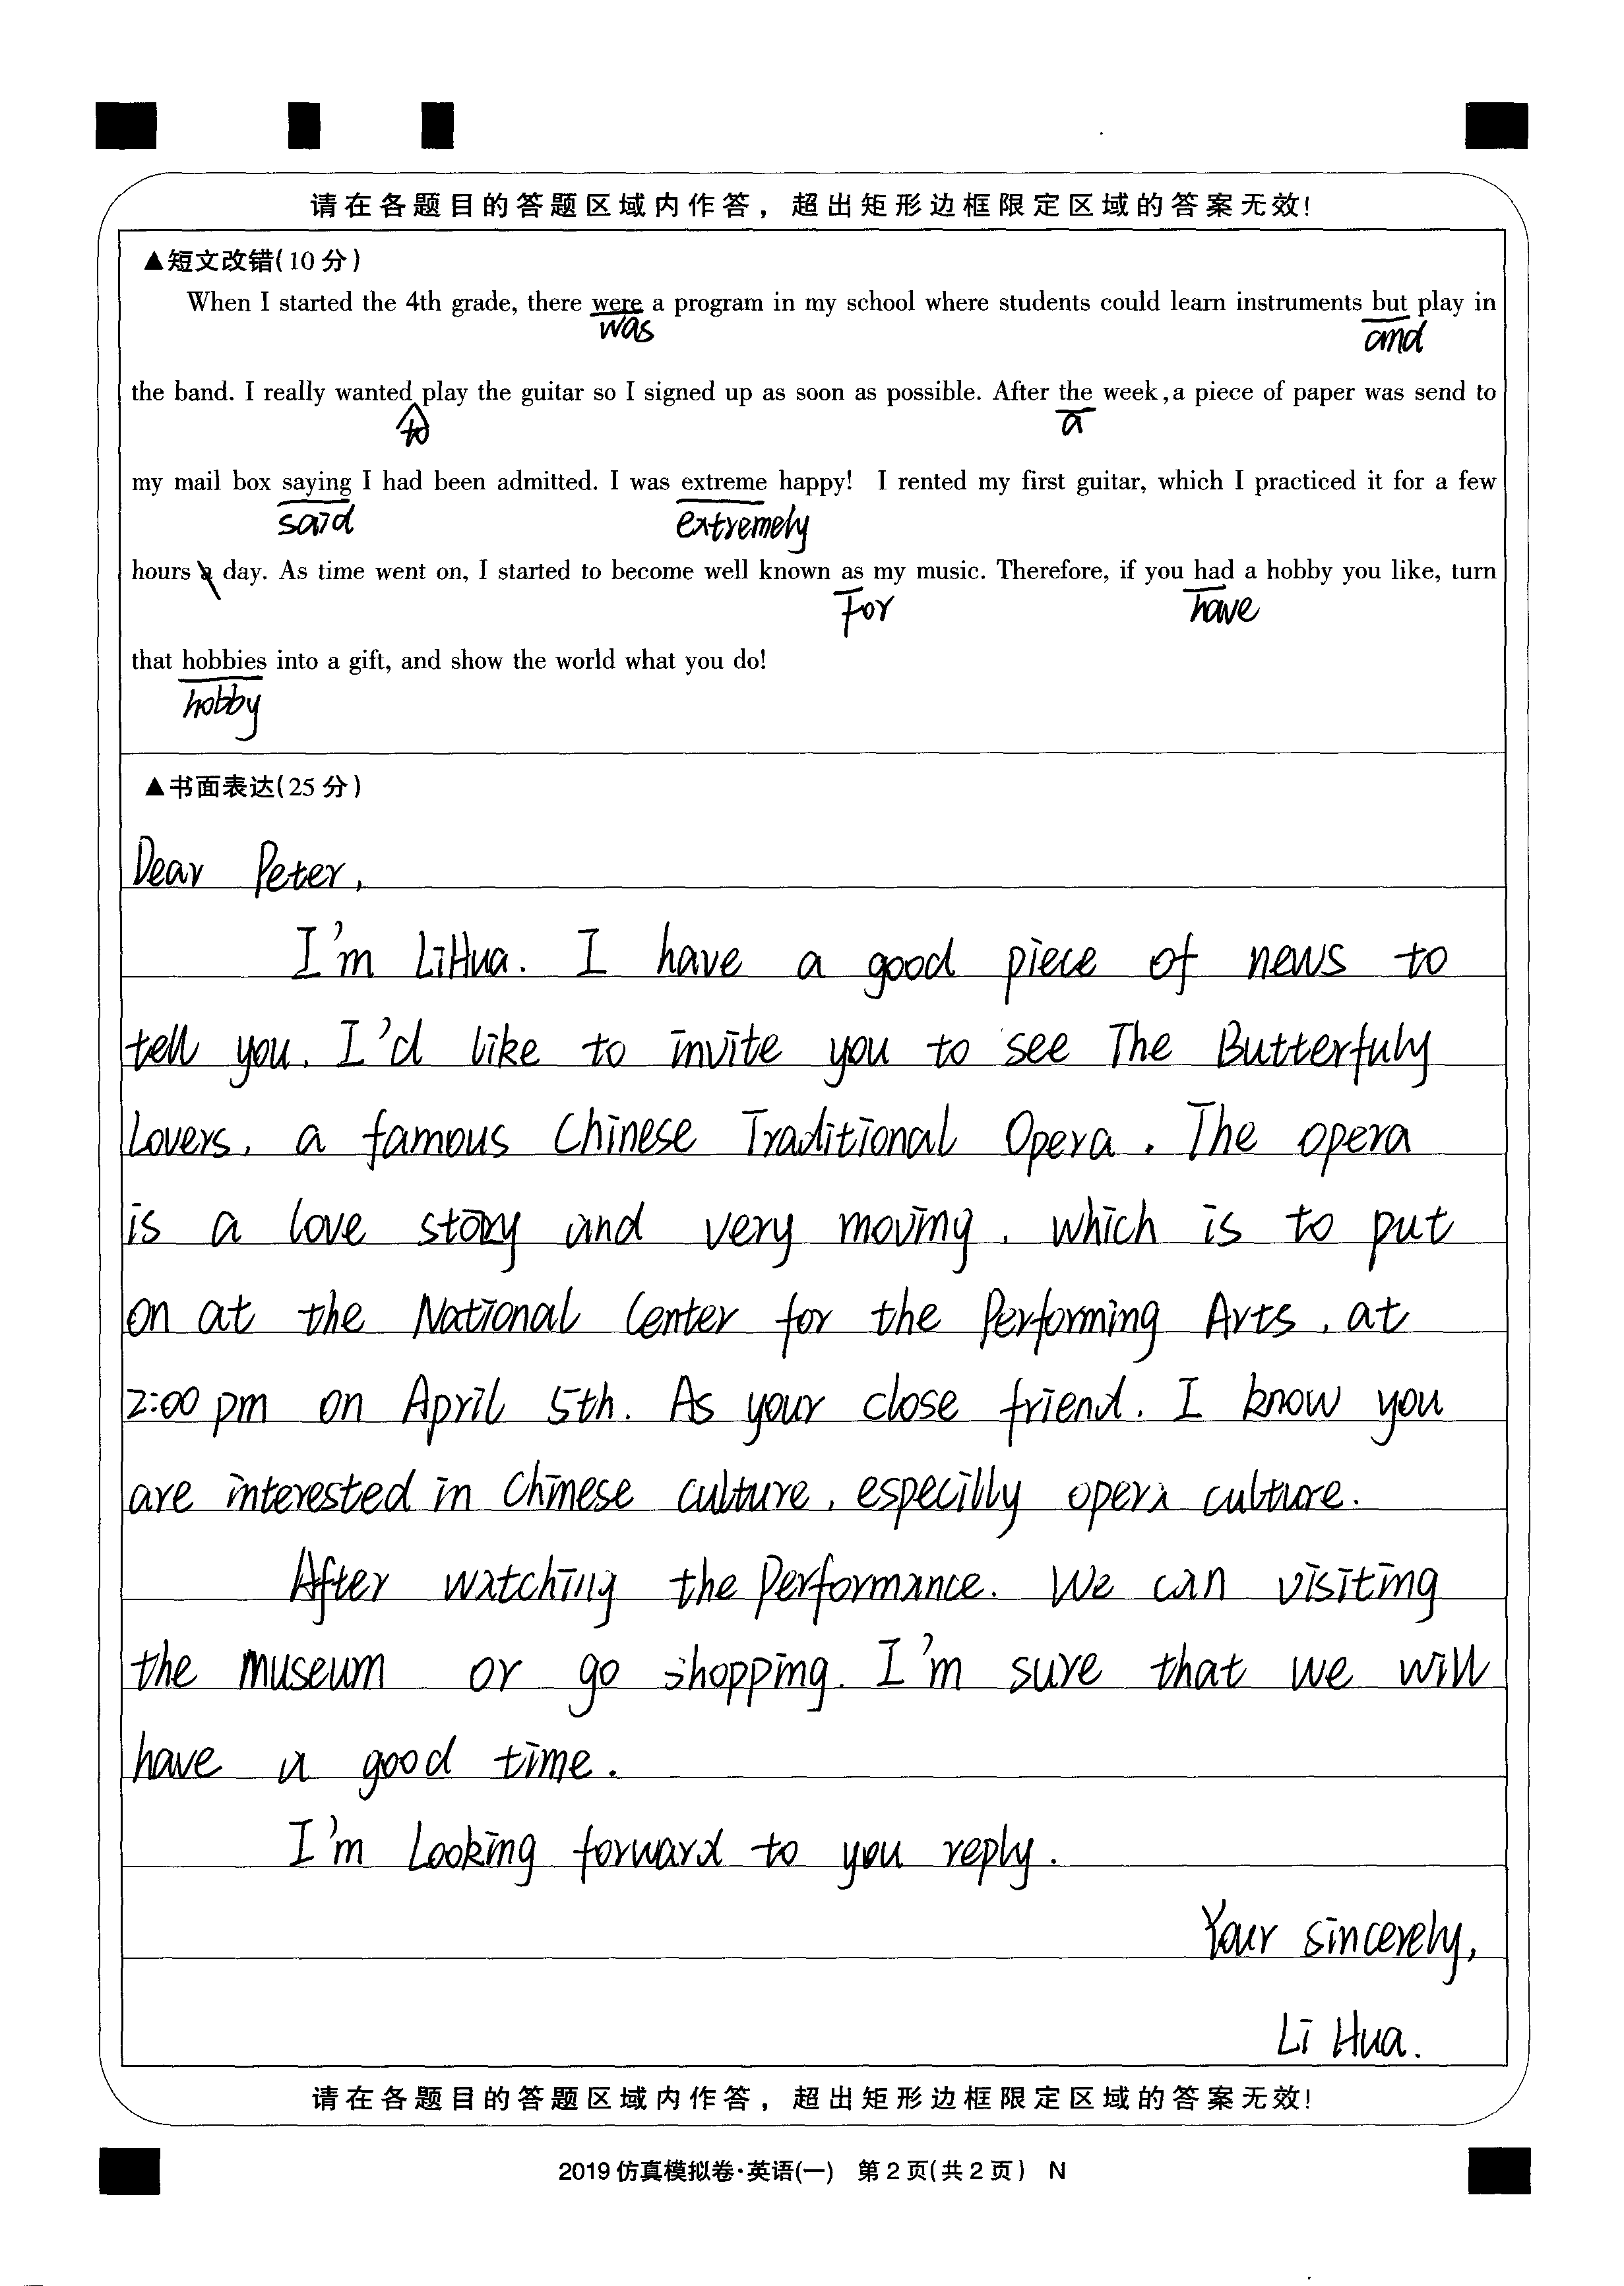 请在各题目的答题区域内作答，超出矩形边框限定区域的答案无效!
▲短文改错(10分)
When I started the 4th grade, there were a program in my school where students could learn instruments but play in
was and
the band. I really wanted play the guitar so I signed up as soon as possible. After the week, a piece of paper was send to
to a
my mail box saying I had been admitted. I was extreme happy! I rented my first guitar, which I practiced it for a few
said extremely
hours a day. As time went on, I started to become well known as my music. Therefore, if you had a hobby you like, turn
For have
that hobbies into a gift, and show the world what you do!
hobby
▲书面表达(25分)
Dear Peter,
I'm LiHua. I have a good piece of news to
tell you. I'd like to invite you to see The Butterfuly
Lovers, a famous Chinese Traditional Opera. The opera
is a love story and very moving, which is to put
on at the National Center for the Performing Arts, at
2:00 pm on April 5th. As your close friend. I know you
are interested in Chinese culture, especilly opera culture.
After watching the Performance. We can visiting
the museum or go shopping. I'm sure that we will
have a good time.
I'm Looking forward to you reply.
Your sincerely,
Li Hua.
请在各题目的答题区域内作答，超出矩形边框限定区域的答案无效!
2019仿真模拟卷·英语(一) 第2页(共2页) N